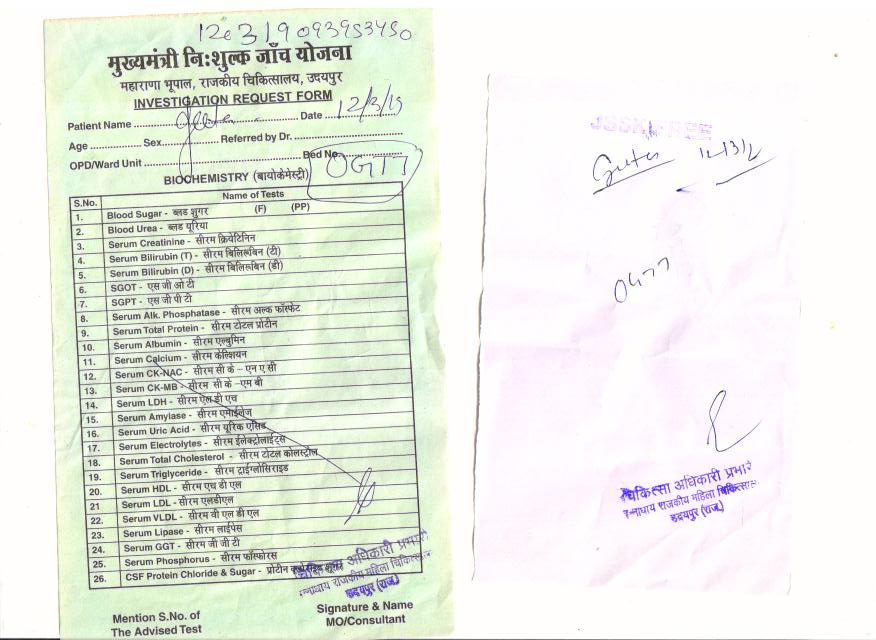 12e319093953450
मुख्यमंत्री निःशुल्क जाँच योजना
महाराणा भूपाल, राजकीय चिकित्सालय, उदयपुर
INVESTIGATION REQUEST FORM
Patient Name Date 12/3/19
Age Sex Referred by Dr.
OPD/Ward Unit Bed No.
OGTT
BIOCHEMISTRY (बायोकेमेस्ट्री)
S.No. Name of Tests
1. Blood Sugar - ब्लड शुगर (F) (PP)
2. Blood Urea - ब्लड यूरिया
3. Serum Creatinine - सीरम क्रियेटिनिन
4. Serum Bilirubin (T) - सीरम बिलिरूबिन (टी)
5. Serum Bilirubin (D) - सीरम बिलिरूबिन (डी)
6. SGOT - एस जी ओ टी
7. SGPT - एस जी पी टी
8. Serum Alk. Phosphatase - सीरम अल्क फॉस्फेट
9. Serum Total Protein - सीरम टोटल प्रोटीन
10. Serum Albumin - सीरम एल्बुमिन
11. Serum Calcium - सीरम केल्शियन
12. Serum CK-NAC - सीरम सी के - एन ए सी
13. Serum CK-MB - सीरम सी के -एम बी
14. Serum LDH - सीरम एल डी एच
15. Serum Amylase - सीरम एमाईलेज
16. Serum Uric Acid - सीरम यूरिक एसिड
17. Serum Electrolytes - सीरम ईलेक्ट्रोलाईट्स
18. Serum Total Cholesterol - सीरम टोटल कोलस्ट्रोल
19. Serum Triglyceride - सीरम ट्राईग्लोसिराइड
20. Serum HDL - सीरम एच डी एल
21 Serum LDL - सीरम एलडीएल
22. Serum VLDL - सीरम वी एल डी एल
23. Serum Lipase - सीरम लाईपेस
24. Serum GGT - सीरम जी जी टी
25. Serum Phosphorus - सीरम फॉस्फोरस
26. CSF Protein Chloride & Sugar - प्रोटीन शुगर
अधिकारी प्रभारी
राजकीय महिला चिकित्सा
उदयपुर (राज.)
Mention S.No. of
The Advised Test
Signature & Name
MO/Consultant
JSSK FREE
OGTT
चिकित्सा अधिकारी प्रभारी
राजकीय महिला चिकित्साल
उदयपुर (राज.)